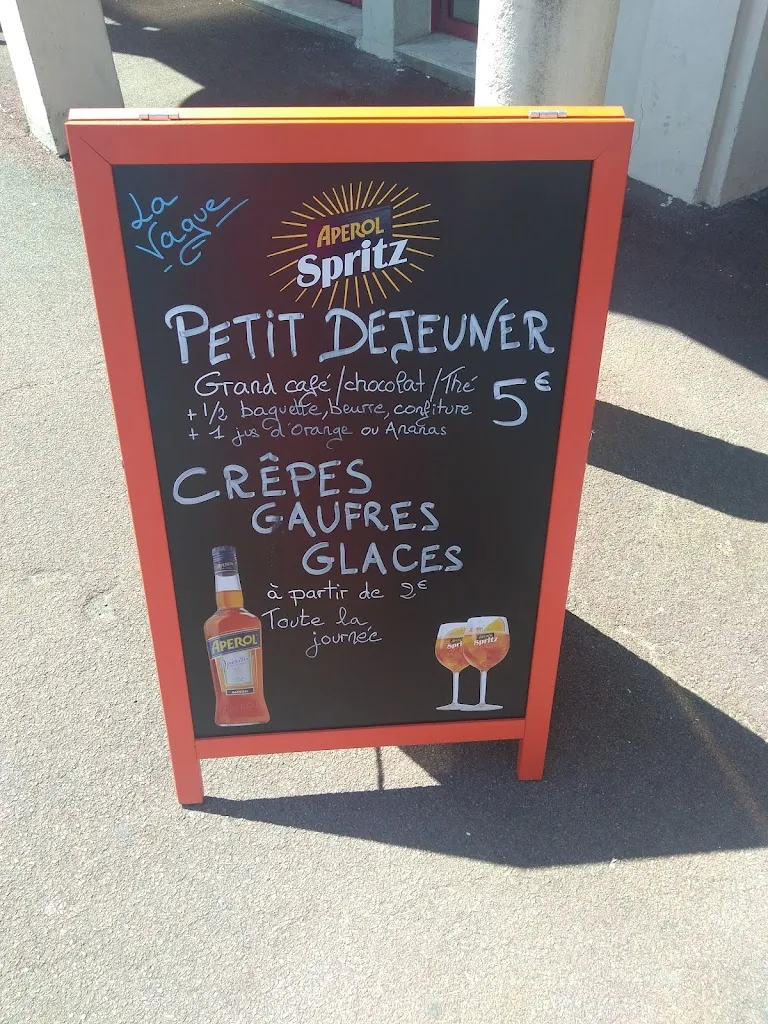 La
Vague
APEROL
Spritz
PETIT DEJEUNER
Grand café/chocolat/Thé
+ 1/2 baguette, beurre, confiture
+ 1 jus d'orange ou Ananas
5€
CRÊPES
GAUFRES
GLACES
à partir de 2€
Toute la
journée
APEROL